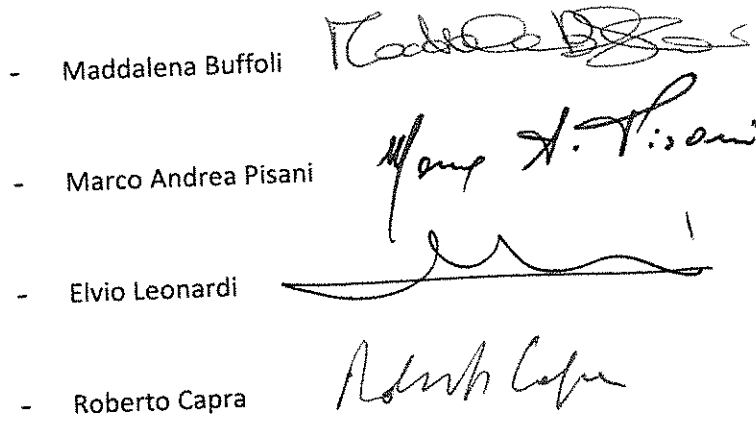 - Maddalena Buffoli Maddalena Buffoli
- Marco Andrea Pisani Marco A. Pisani
- Elvio Leonardi
- Roberto Capra Roberto Capra